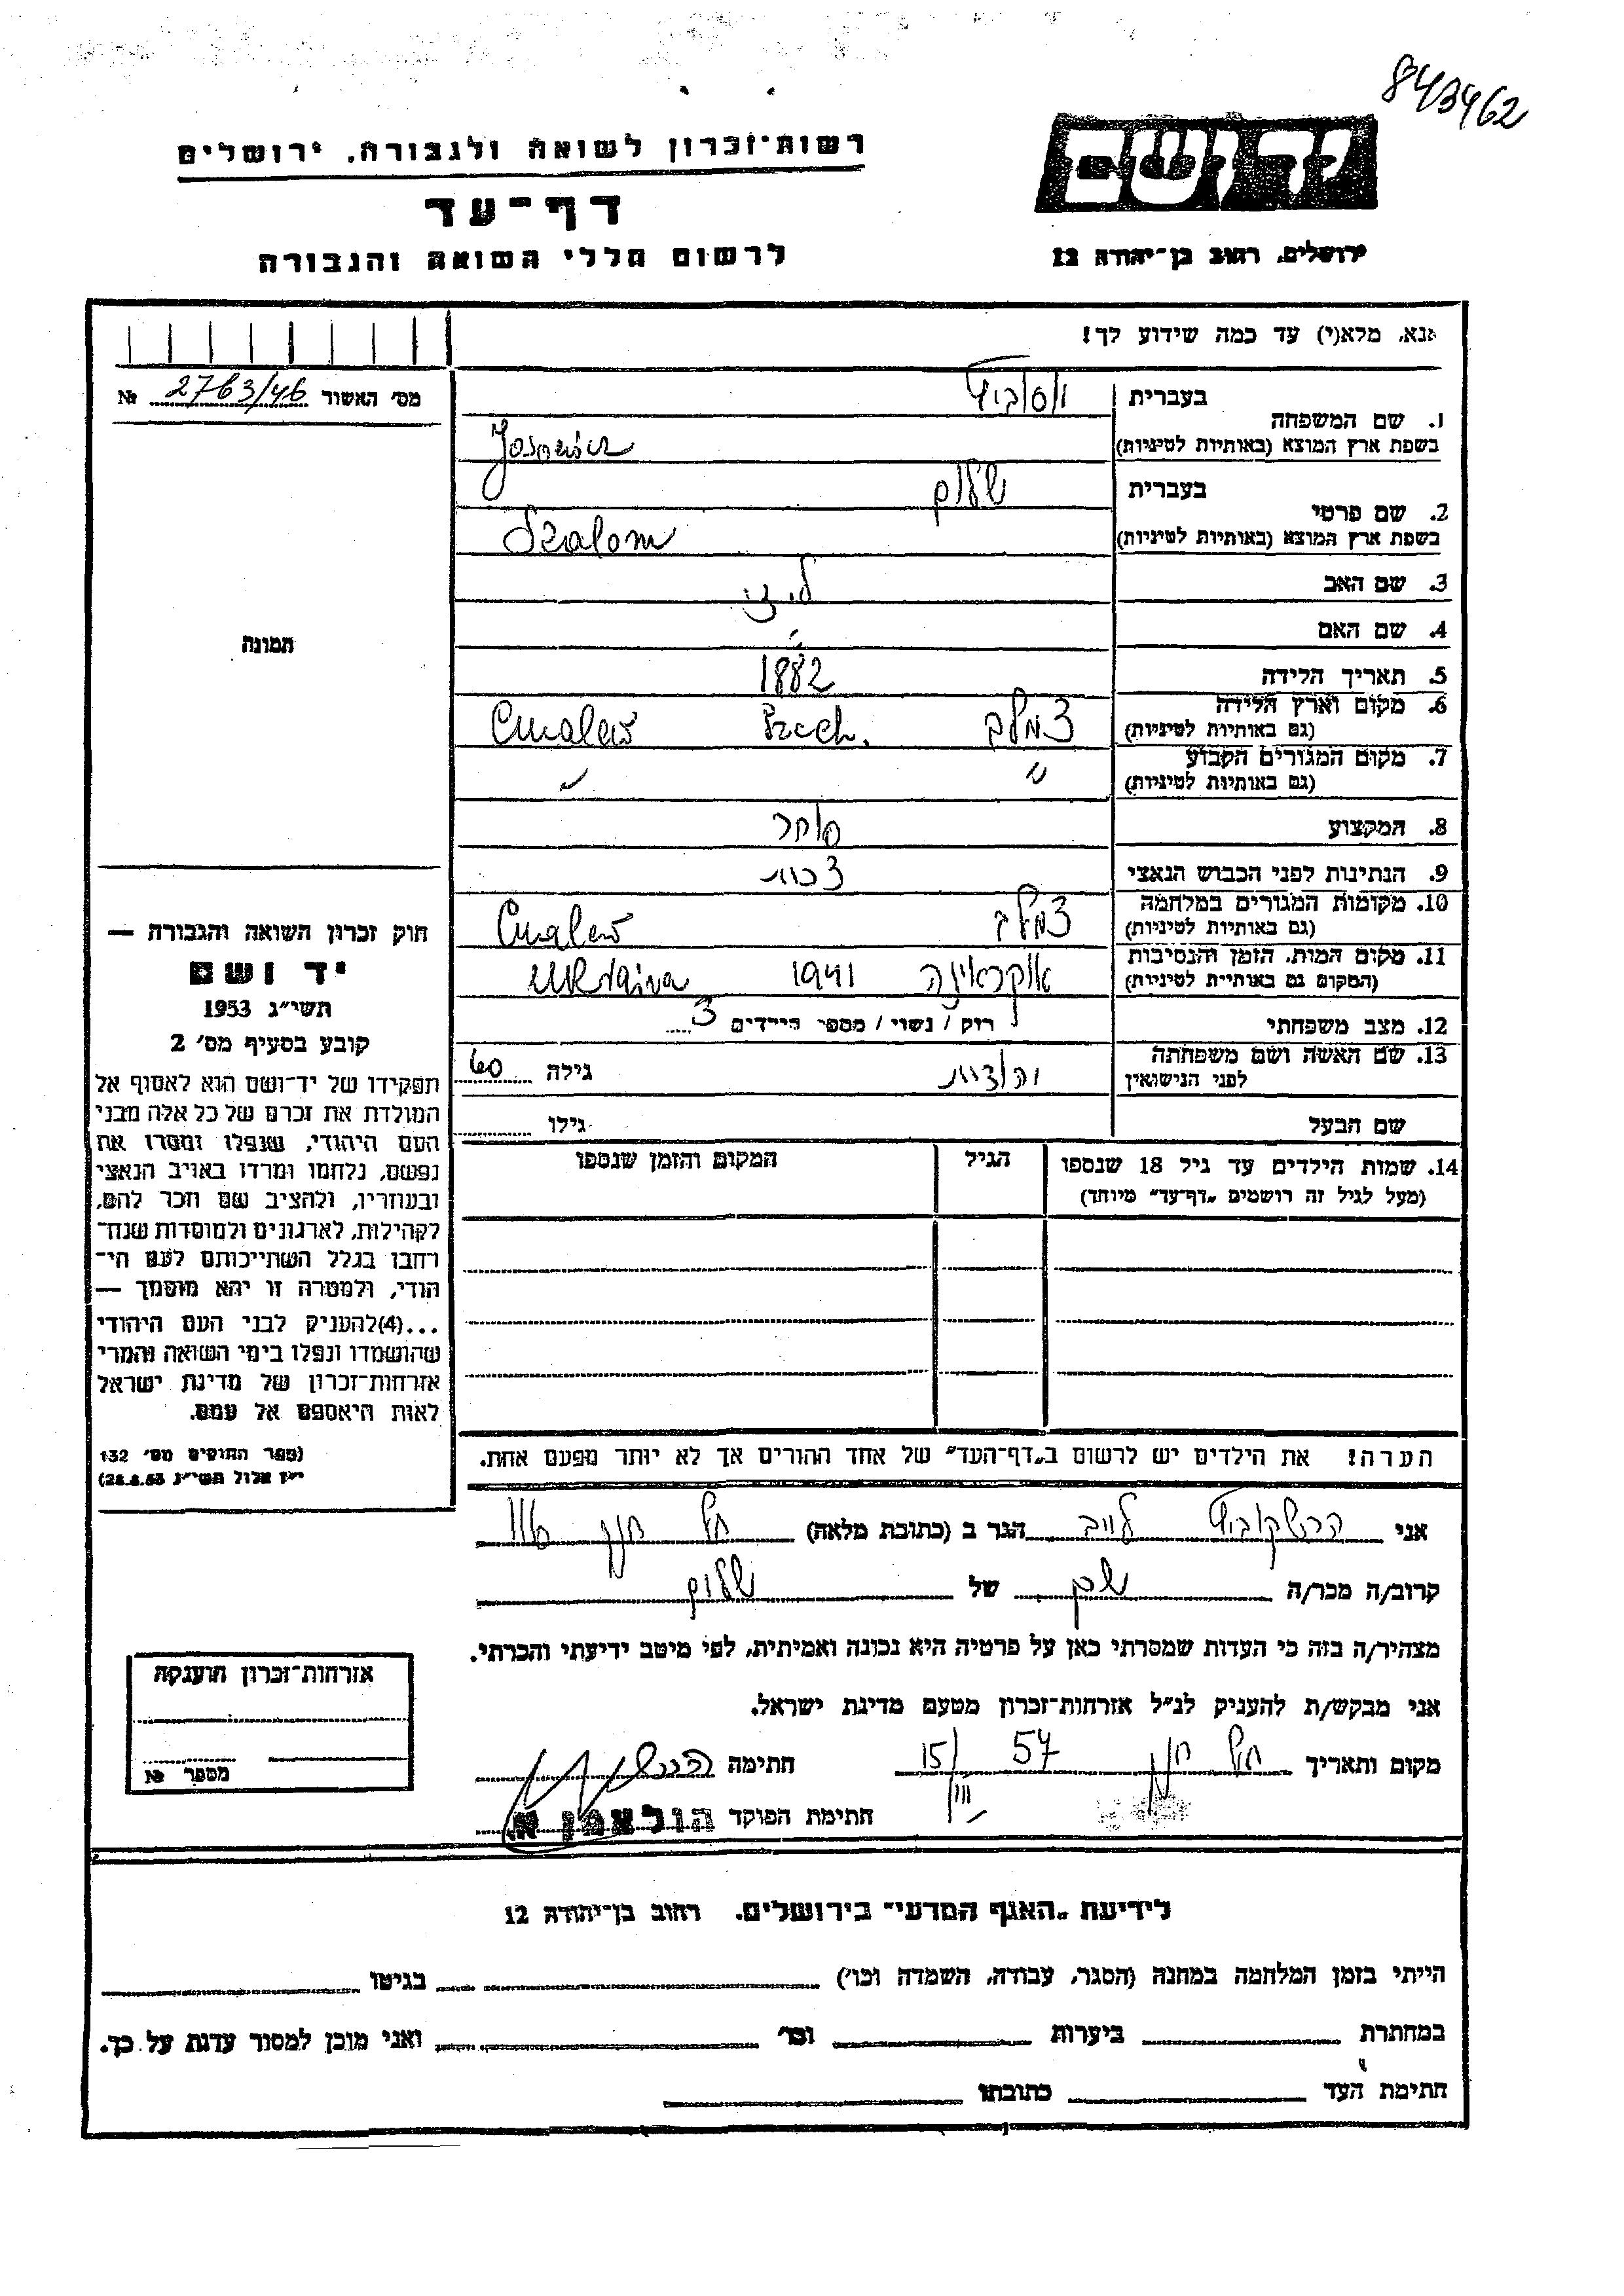 843462
רשות־זכרון לשואה ולגבורה, ירושלים
דף־עד
לרשום חללי השואה והגבורה
יד ושם
ירושלים, רחוב בן־יהודה 12
אנא, מלא(י) עד כמה שידוע לך!
מס׳ האשור 2763/46 №
תמונה
1. שם המשפחה
בעברית
בשפת ארץ המוצא (באותיות לטיניות) Josowicz
2. שם פרטי
בעברית שלום
בשפת ארץ המוצא (באותיות לטיניות) Szalom
3. שם האב
4. שם האם
5. תאריך הלידה 1882
6. מקום וארץ הלידה
(גם באותיות לטיניות)
7. מקום המגורים הקבוע
(גם באותיות לטיניות)
8. המקצוע סוחר
9. הנתינות לפני הכבוש הנאצי
10. מקומות המגורים במלחמה
(גם באותיות לטיניות)
11. מקום המות, הזמן והנסיבות אוקראינה 1941 Ukraina
(המקום גם באותיות לטיניות)
12. מצב משפחתי רוק / נשוי / מספר הילדים 3
13. שם האשה ושם משפחתה
לפני הנישואין גילה 60
שם הבעל גילו
14. שמות הילדים עד גיל 18 שנספו הגיל המקום והזמן שנספו
(מעל לגיל זה רושמים „דף־עד״ מיוחד)
הערה! את הילדים יש לרשום ב„דף־העד״ של אחד ההורים אך לא יותר מפעם אחת.
חוק זכרון השואה והגבורה —
יד ושם
תשי״ג 1953
קובע בסעיף מס׳ 2
תפקידו של יד־ושם הוא לאסוף אל
המולדת את זכרם של כל אלה מבני
העם היהודי, שנפלו ומסרו את
נפשם, נלחמו ומרדו באויב הנאצי
ובעוזריו, ולהציב שם וזכר להם,
לקהילות, לארגונים ולמוסדות שנח־
רחבו בגלל השתייכותם לעם הי־
הודי, ולמטרה זו יהא מוסמך —
...(4)להעניק לבני העם היהודי
שהושמדו ונפלו בימי השואה והמרי
אזרחות־זכרון של מדינת ישראל
לאות היאספם אל עמם.
(ספר החוקים מס׳ 132
י״ז אלול תשי״ג 28.8.53)
אני הרשקוביץ לייב הגר ב (כתובת מלאה)
קרוב/ה מכר/ה של שלום
מצהיר/ה בזה כי העדות שמסרתי כאן על פרטיה היא נכונה ואמיתית, לפי מיטב ידיעתי והכרתי.
אני מבקש/ת להעניק לנ״ל אזרחות־זכרון מטעם מדינת ישראל.
מקום ותאריך 15/III 57 חתימה
חתימת הפוקד
אזרחות־זכרון הוענקה
מספר №
לידיעת „האגף המדעי״ בירושלים. רחוב בן־יהודה 12
הייתי בזמן המלחמה במחנה (הסגר, עבודה, השמדה וכו׳) בגיטו
במחתרת ביערות וכו׳ ואני מוכן למסור עדות על כך.
חתימת העד כתובתו